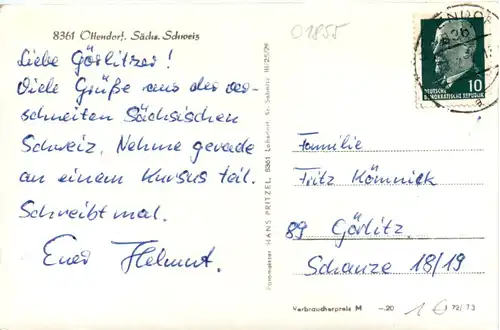 8361 Ottendorf, Sächs. Schweiz
01855
Liebe Görlitzer!
Viele Grüße aus der ver-
schneiten Sächsischen
Schweiz. Nehme gerade
an einem Kursus teil.
Schreibt mal.
Euer Helmut.
HANS PRITZEL, 8361
DEUTSCHE
DEMOKRATISCHE REPUBLIK
10
Familie
Fritz Kömnick
89 Görlitz
Schanze 18/19
Verbraucherpreis M -.20
1 €
72/73